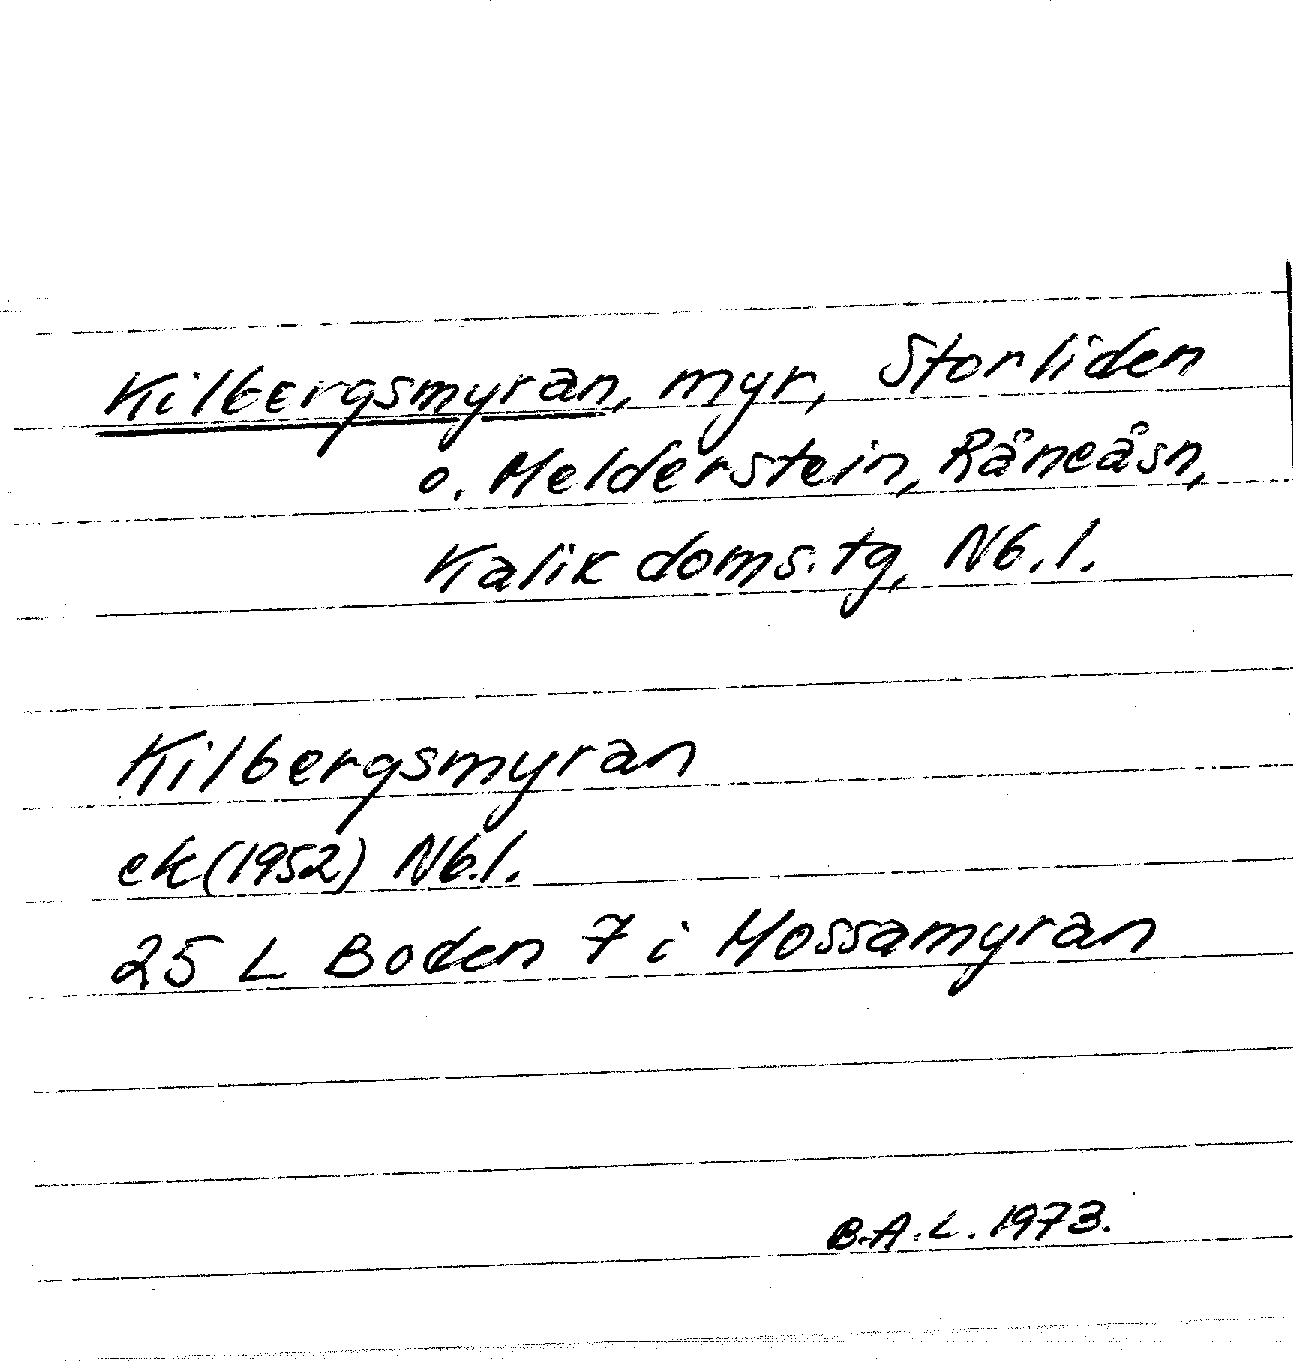 Kilbergsmyran, myr, Storliden
o. Melderstein, Råneåsn,
Kalix doms.tg, Nb.l.
Kilbergsmyran
ek (1952) Nb.l.
25 L Boden 7 i Mossamyran
B.A.L. 1973.